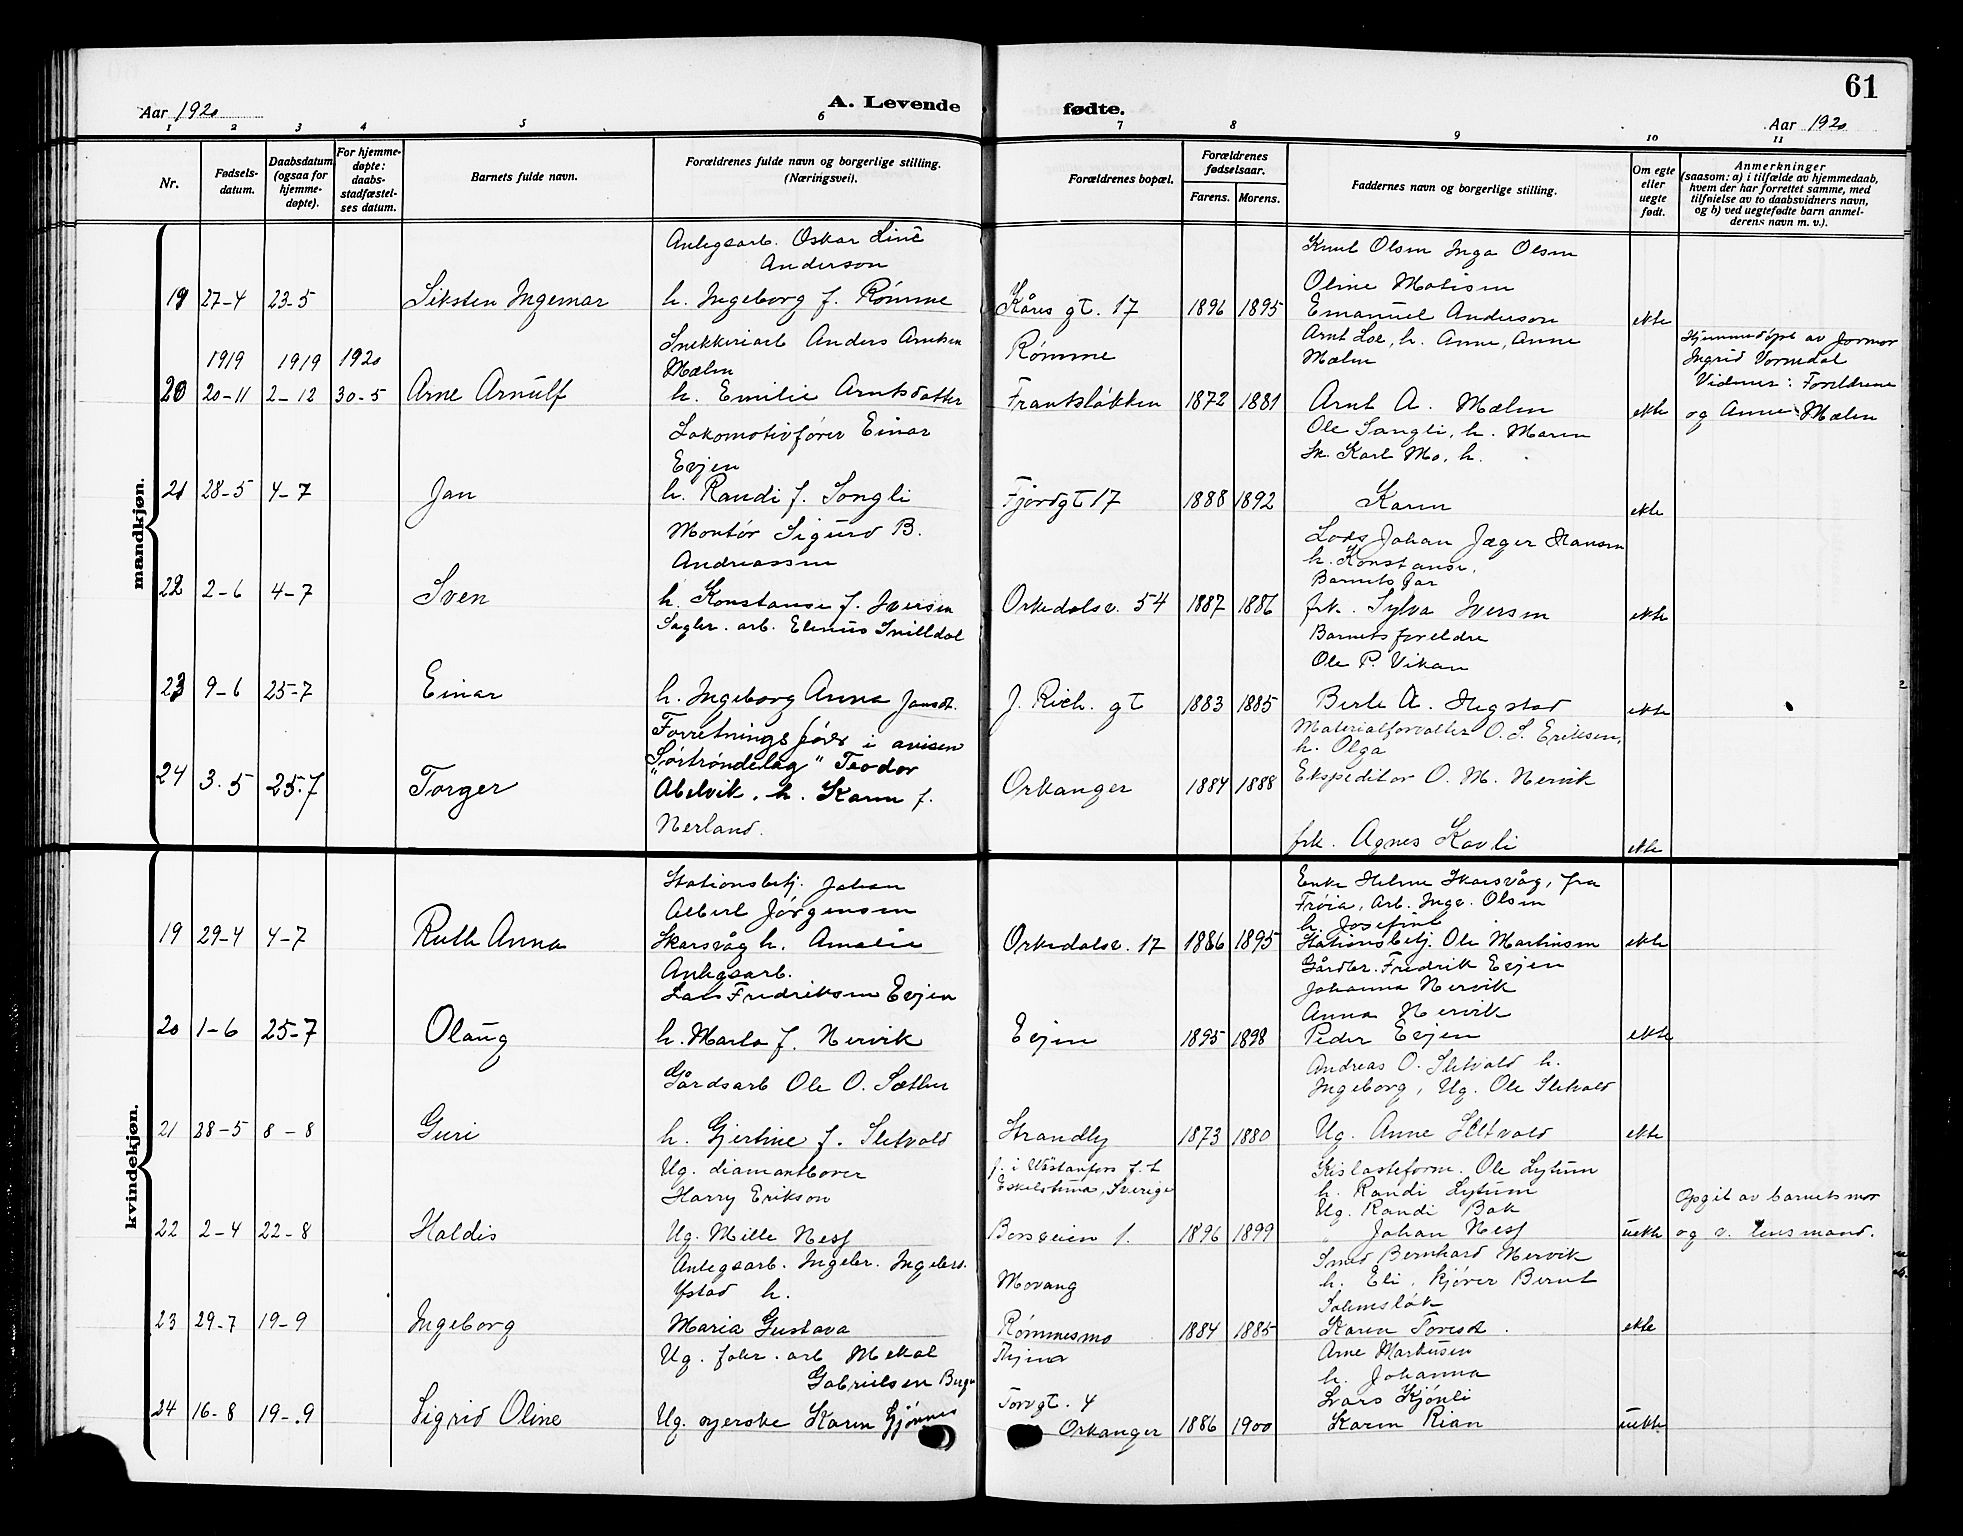 61
Aar 1920
A. Levende
fødte.
Aar 1920
1 2 3 4 5 6 7 8 9 10 11
Nr.
Fødsels-
datum.
Daabsdatum
(ogsaa for
hjemme-
døpte).
For hjemme-
døpte:
daabs-
stadfæstel-
ses datum.
Barnets fulde navn.
Forældrenes fulde navn og borgerlige stilling.
(Næringsvei).
Forældrenes bopæl.
Forældrenes
fødselsaar.
Farens. Morens.
Faddernes navn og borgerlige stilling.
Om egte
eller
uegte
født.
Anmerkninger
(saasom: a) i tilfælde av hjemmedaab,
hvem der har forrettet samme, med
tilføielse av to daabsvidners navn,
og b) ved uegtefødte barn anmel-
derens navn m. v.).
mandkjøn.
Anlegsarb. Oskar Linè
Anderson
19 27-4 23-5 Siksten Ingemar h. Ingeborg f. Rømme
Kåres gt. 17 1896 1895
Knut Olsen Inga Olsen
Oline Matisen
Emanuel Anderson
ekte
Snekkeriarb Anders Arntsen
Mælen
1919 1919 1920
20 20-11 2-12 30-5 Arne Arnulf h. Emilie Arntsdatter
Rømme
Frantsløkken 1872 1881
Arnt Loe, h. Anne, Anne
Mælen
Arnt A. Mælen
ekte
Hjemmedøpt av jormor
Ingrid Vormdal
Vidner: Foreldrene
og Anne Mælen
Lokomotivfører Einar
Evjen
21 28-5 4-7 Jan h. Randi f. Songli
Fjordgt 17 1888 1892
Ole Sangli, h. Maren
Sk. Karl Mo, h.
Karen
ekte
Montør Sigurd B.
Andreassen
22 2-6 4-7 Sven h. Konstanse f. Iversen
Orkedalsv. 54 1887 1886
Lods Johan Jæger Hansen
h. Konstanse,
Barnets far
frk. Sylva Iversen
ekte
Sagbr. arb. Elenus Snilldal
23 9-6 25-7 Einar h. Ingeborg Anna Jansdt.
J. Rich. gt 1883 1885
Barnets foreldre
Ole P. Vikan
Berle A. Hegstad
ekte
Forretningsfører i avisen
"Sørtrøndelag" Teodor
24 3.5 25-7 Torger Abelvik. h. Karen f.
Nerland.
Orkanger 1884 1888
Materialforvalter O. S. Eriksen,
h. Olga
Ekspeditør O. M. Nervik
frk. Agnes Kavli
ekte
kvindekjøn.
Stationsbetj. Johan
Albert Jørgensen
19 29-4 4-7 Ruth Anna Skarsvåg h. Amalie
Orkedalsv. 17 1886 1895
Enke Helene Skarsvåg, fra
Frøia, Arb. Inge. Olsen
h. Josefine
Stationsbetj. Ole Martinsen
ekte
Anlegsarb.
Lars Fredriksen Evjen
20 1-6 25-7 Olaug h. Marta f. Nervik
Evjen 1895 1898
Gårdbr. Fredrik Evjen
Johanna Nervik
Anna Nervik
Peder Evjen
ekte
Gårdsarb Ole O. Sæther
21 28-5 8-8 Guri h. Gjertine f. Sletvold
Strandby 1873 1880
Andreas O. Sletvold h.
Ingeborg, Ug. Ole Sletvold
Ug. Anne Sletvold
ekte
Ug. diamantborer
Harry Erikson
22 2-4 22-8 Haldis Ug. Mille Ness
f. i Västanfors f. t
Eskilstuna, Sverige
Borsveien 1. 1896 1899
Kislasteform. Ole Lytum
h. Randi Lytum
Ug. Randi Bak
" Johan Ness
uekte
Opgit av barnets mor
og v. Lensmand.
Anlegsarb. Ingebr. Ingebr.
Ystad h.
23 29-7 19-9 Ingeborg Maria Gustava
Movang
Rømmesmo 1884 1885
Smed Bernhard Nervik
h. Eli, kjører Bernt
Solemsløk
Karen Toresdt.
ekte
Ug. fabr. arb Mekal
Gabrielsen Berge
24 16-8 19-9 Sigrid Oline Ug. syerske Karen Gjønnes
Torvgt. 4
Orkanger 1886 1900
Arne Markusen
h. Johanna
Lars Kjønli
Karen Rian
uekte